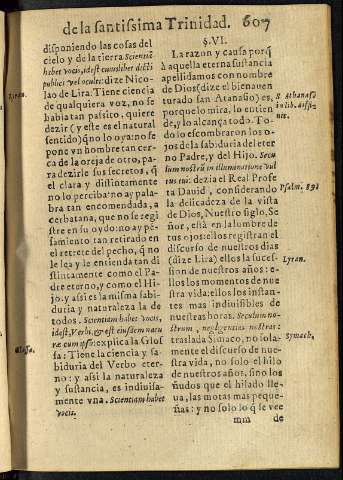 de la santissima Trinidad. 607
disponiendo las cosas del
cielo y de la tierra Scientiã
habet vocis, idest cuiuslibet delicti
publici vel oculti: dize Nico-
Liran.
lao de Lira: Tiene ciencia
de qualquiera voz, no se
habia tan passito, quiere
dezir (y este es el natural
sentido) q̃ no lo oya: no se
pone vn hombre tan cer-
ca de la oreja de otro, pa-
ra dezirle sus secretos, q̃
el clara y distintamente
no lo perciba: no ay pala-
bra tan encomendada, a
cerbatana, que no se regi-
stre en su oydo: no ay pẽ-
samiento tan retirado en
el retrete del pecho, q̃ no
le lea y le entienda tan di-
stintamente como el Pa-
dre eterno, y como el Hi-
jo. y assi es la misma sabi-
duria y naturaleza la de
todos. Scientiam habet vocis,
idest, Verbi, quia est eiusdem natu-
ræ cum ipso: explica la Glos-
Glossa.
sa: Tiene la ciencia y sa-
biduria del Verbo eter-
no: y assi la naturaleza
y sustancia, es indiuisa-
mente vna. Scientiam habet
vocis.
§. VI.
La razon y causa porq̃
à aquella eterna sustancia
apellidamos con nombre
de Dios (dize el bienauen
turado san Atanasio) es,
S Athanasi
porque lo mira, lo entien
in lib. diffi-
de, y lo alcança todo. To-
nit.
do lo escombraron los o-
jos de la sabiduria del eter
no Padre, y del Hijo. Secu
lum nostrũ in illuminatione vul
tus tui: dezia el Real Profe
ta Dauid, considerando
Psalm. 89.
la delicadeza de la vista
de Dios, Nuestro siglo, Se
ñor, està en la lumbre de
tus ojos: ellos registran el
discurso de nuestros dias
(dize Lira) ellos la suces-
Lyran.
sion de nuestros años: e-
llos los momentos de nue
stra vida: ellos los instan-
tes mas indiuisibles de
nuestras horas. Seculum no-
strum, negligentias nostras:
traslada Simaco, no sola-
Symach,
mente el discurso de nue-
stra vida, no solo el hilo
de nuestros años, sino los
ñudos que el hilado lle-
ua, las motas mas peque-
ñas: y no solo lo q̃ se vee
mm de